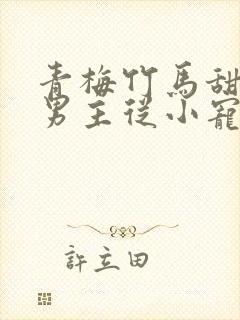 青梅竹馬甜
男主從小寵
許立田